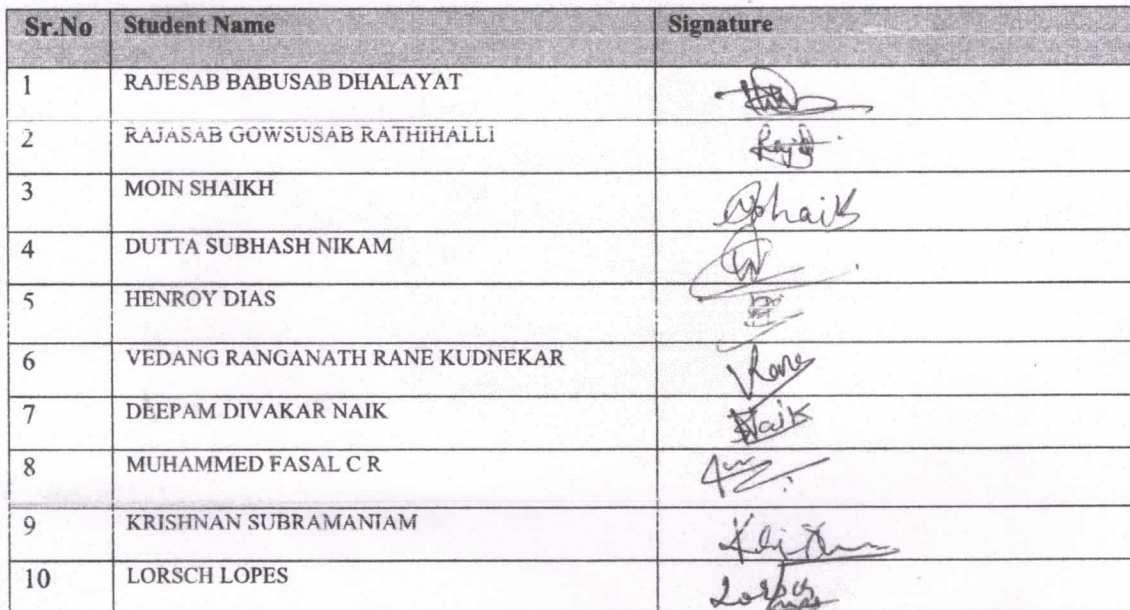 Sr.No Student Name Signature
1 RAJESAB BABUSAB DHALAYAT
2 RAJASAB GOWSUSAB RATHIHALLI
3 MOIN SHAIKH Shaik
4 DUTTA SUBHASH NIKAM
5 HENROY DIAS
6 VEDANG RANGANATH RANE KUDNEKAR VRane
7 DEEPAM DIVAKAR NAIK Naik
8 MUHAMMED FASAL C R
9 KRISHNAN SUBRAMANIAM
10 LORSCH LOPES